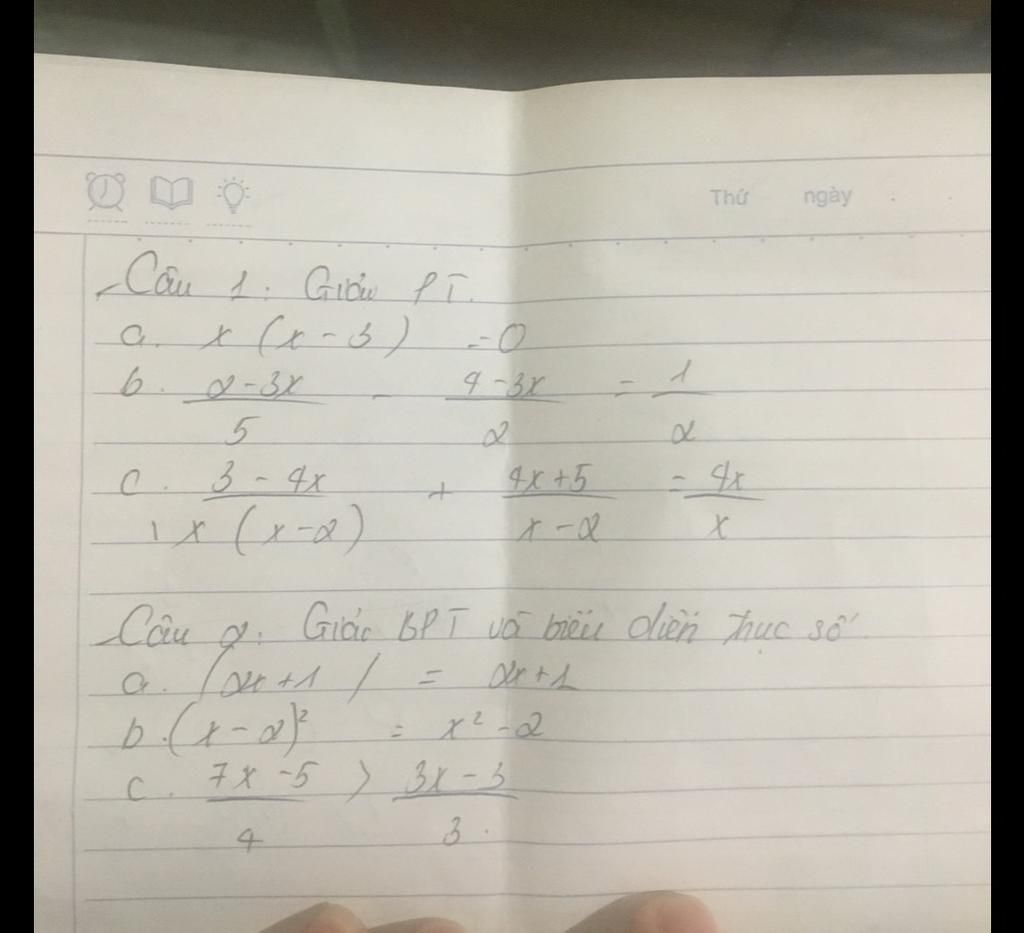 Thứ ngày
Câu 1: Giải PT.
a. x (x - 3) = 0
b. (2 - 3x)/5 - (4 - 3x)/2 = 1/2
c. (3 - 4x)/(x (x - 2)) + (4x + 5)/(x - 2) = 4x/x
Câu 2: Giải BPT và biểu diễn trục số.
a. |2x + 1| = 2x + 1
b. (x - 2)² = x² - 2
c. (7x - 5)/4 > (3x - 3)/3